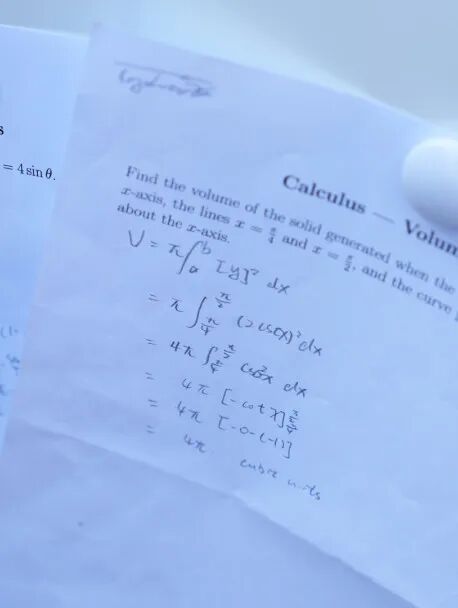 s
= 4 sin θ.
Calculus — Volum
Find the volume of the solid generated when the
x-axis, the lines x = π/4 and x = π/2, and the curve
about the x-axis.
V = π∫_a^b [y]² dx
= π ∫_{π/4}^{π/2} (2 csc x)² dx
= 4π ∫_{π/4}^{π/2} csc²x dx
= 4π [-cot x]_{π/4}^{π/2}
= 4π [-0-(-1)]
= 4π cubic units